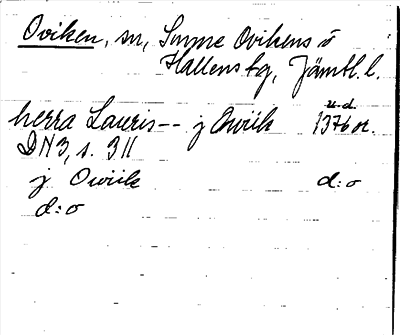 Oviken, sn, Sunne Ovikens o
Hallens tg, Jämtl. l.
u. d.
herra Lauris-- j Owiik 1376 or.
DN3, s. 311
j Owiik d:o
d:o